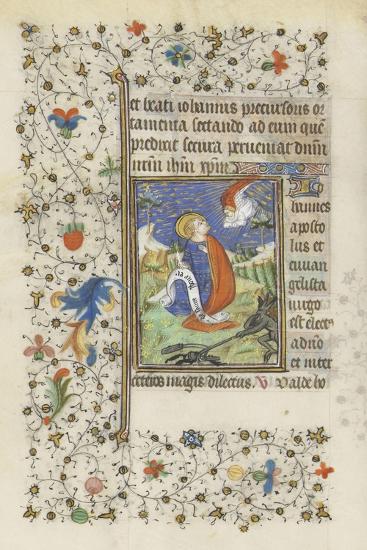 et beati iohannis precursoris or
tamenta sectando ad eum quē
predixit secura perueniat dnm̄
nrm̄ ihm̄ xpm̄
Iohannes
aposto
lus et
euuan
gelista
uirgo
est elect9
a dn̄o
et inter
ceteros magis dilectus. V Valde ho